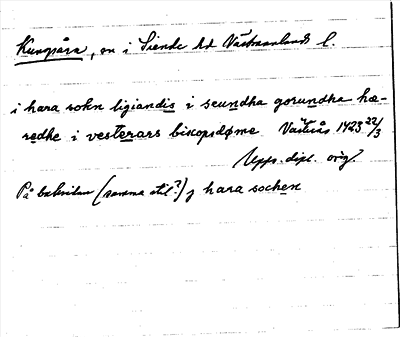 Kungsåra, sn i Siende hd Västmanlands l.
i hara sokn ligiandis i seundha gorundha hæ-
redhe i vesterars biscopsdøme. Västerås 1423 22/3
Upps. dipl. orig.
På baksidan (samma stil?) j hara sochen